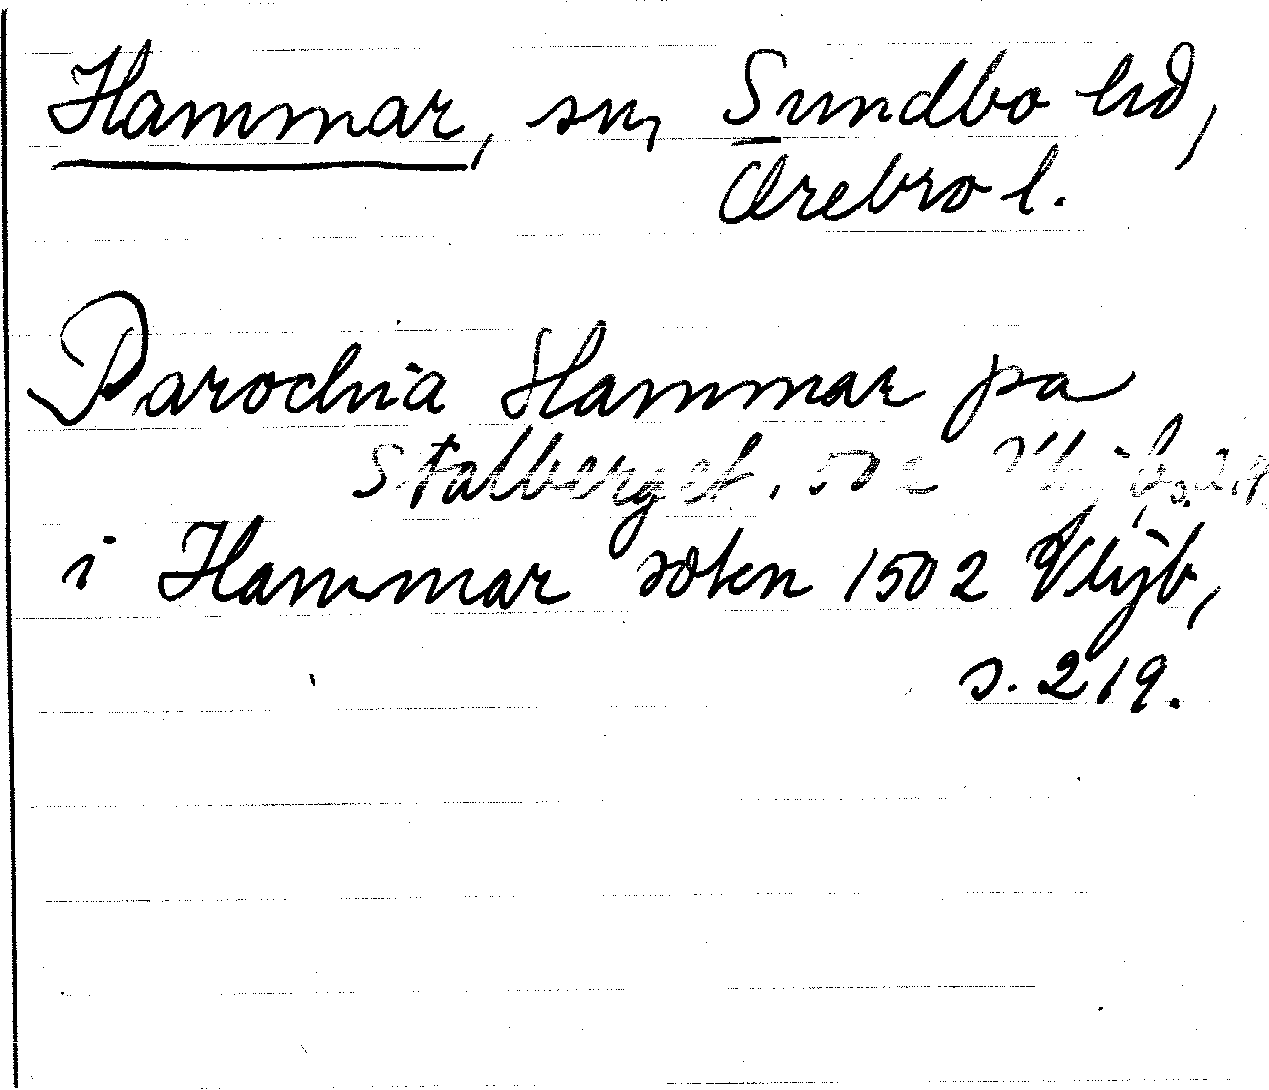 Hammar, sn, Sundbo hd,
Örebro l.
Parochia Hammar pa
Stalberget. 1502 Vhjb, s. 219
i Hammar sokn 1502 Vhjb,
s. 219.